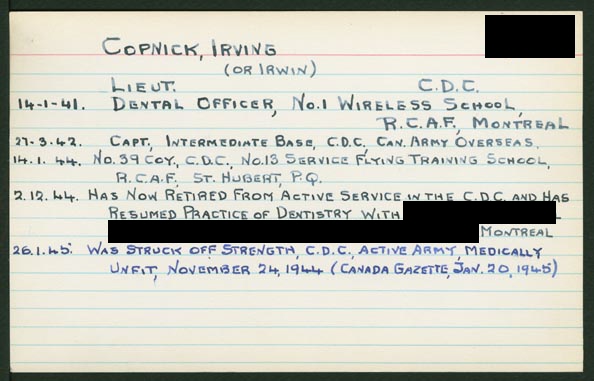 COPNICK, IRVING
(OR IRWIN)
LIEUT. C.D.C.
14-1-41. DENTAL OFFICER, NO.1 WIRELESS SCHOOL,
R.C.A.F., MONTREAL
27-3-42. CAPT, INTERMEDIATE BASE, C.D.C, CAN. ARMY OVERSEAS.
14.1.44. NO. 39 COY, C.D.C, NO.13 SERVICE FLYING TRAINING SCHOOL,
R.C.A.F. ST. HUBERT, P.Q.
2.12.44. HAS NOW RETIRED FROM ACTIVE SERVICE IN THE C.D.C. AND HAS
RESUMED PRACTICE OF DENTISTRY WITH
MONTREAL
26.1.45. WAS STRUCK OFF STRENGTH, C.D.C, ACTIVE ARMY, MEDICALLY
UNFIT, NOVEMBER 24, 1944 (CANADA GAZETTE, JAN. 20, 1945)